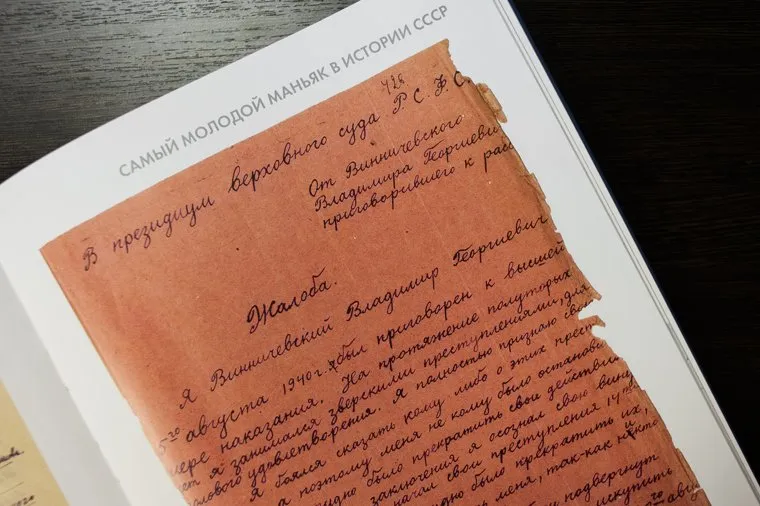 САМЫЙ МОЛОДОЙ МАНЬЯК В ИСТОРИИ СССР
428
В президиум верховного суда Р С Ф С
От Винничевского
Владимира Георгиеви
приговорившего к расс
Жалоба.
Я Винничевский Владимир Георгиевич
5го августа 1940 г. был приговорен к высшей
мере наказания. На протяжение полуторых
лет я занимался зверскими преступлениями, для
полового удовлетворения. Я полностью признаю свою
Я боялся сказать кому либо о этих прест
а поэтому меня не кому было останови
было прекратить свои действия
заключения я осознал свою вину
начал свои преступления 14ти
но было прекратить их,
меня, так-как никто
бы подвергнут
искупить
го авгус